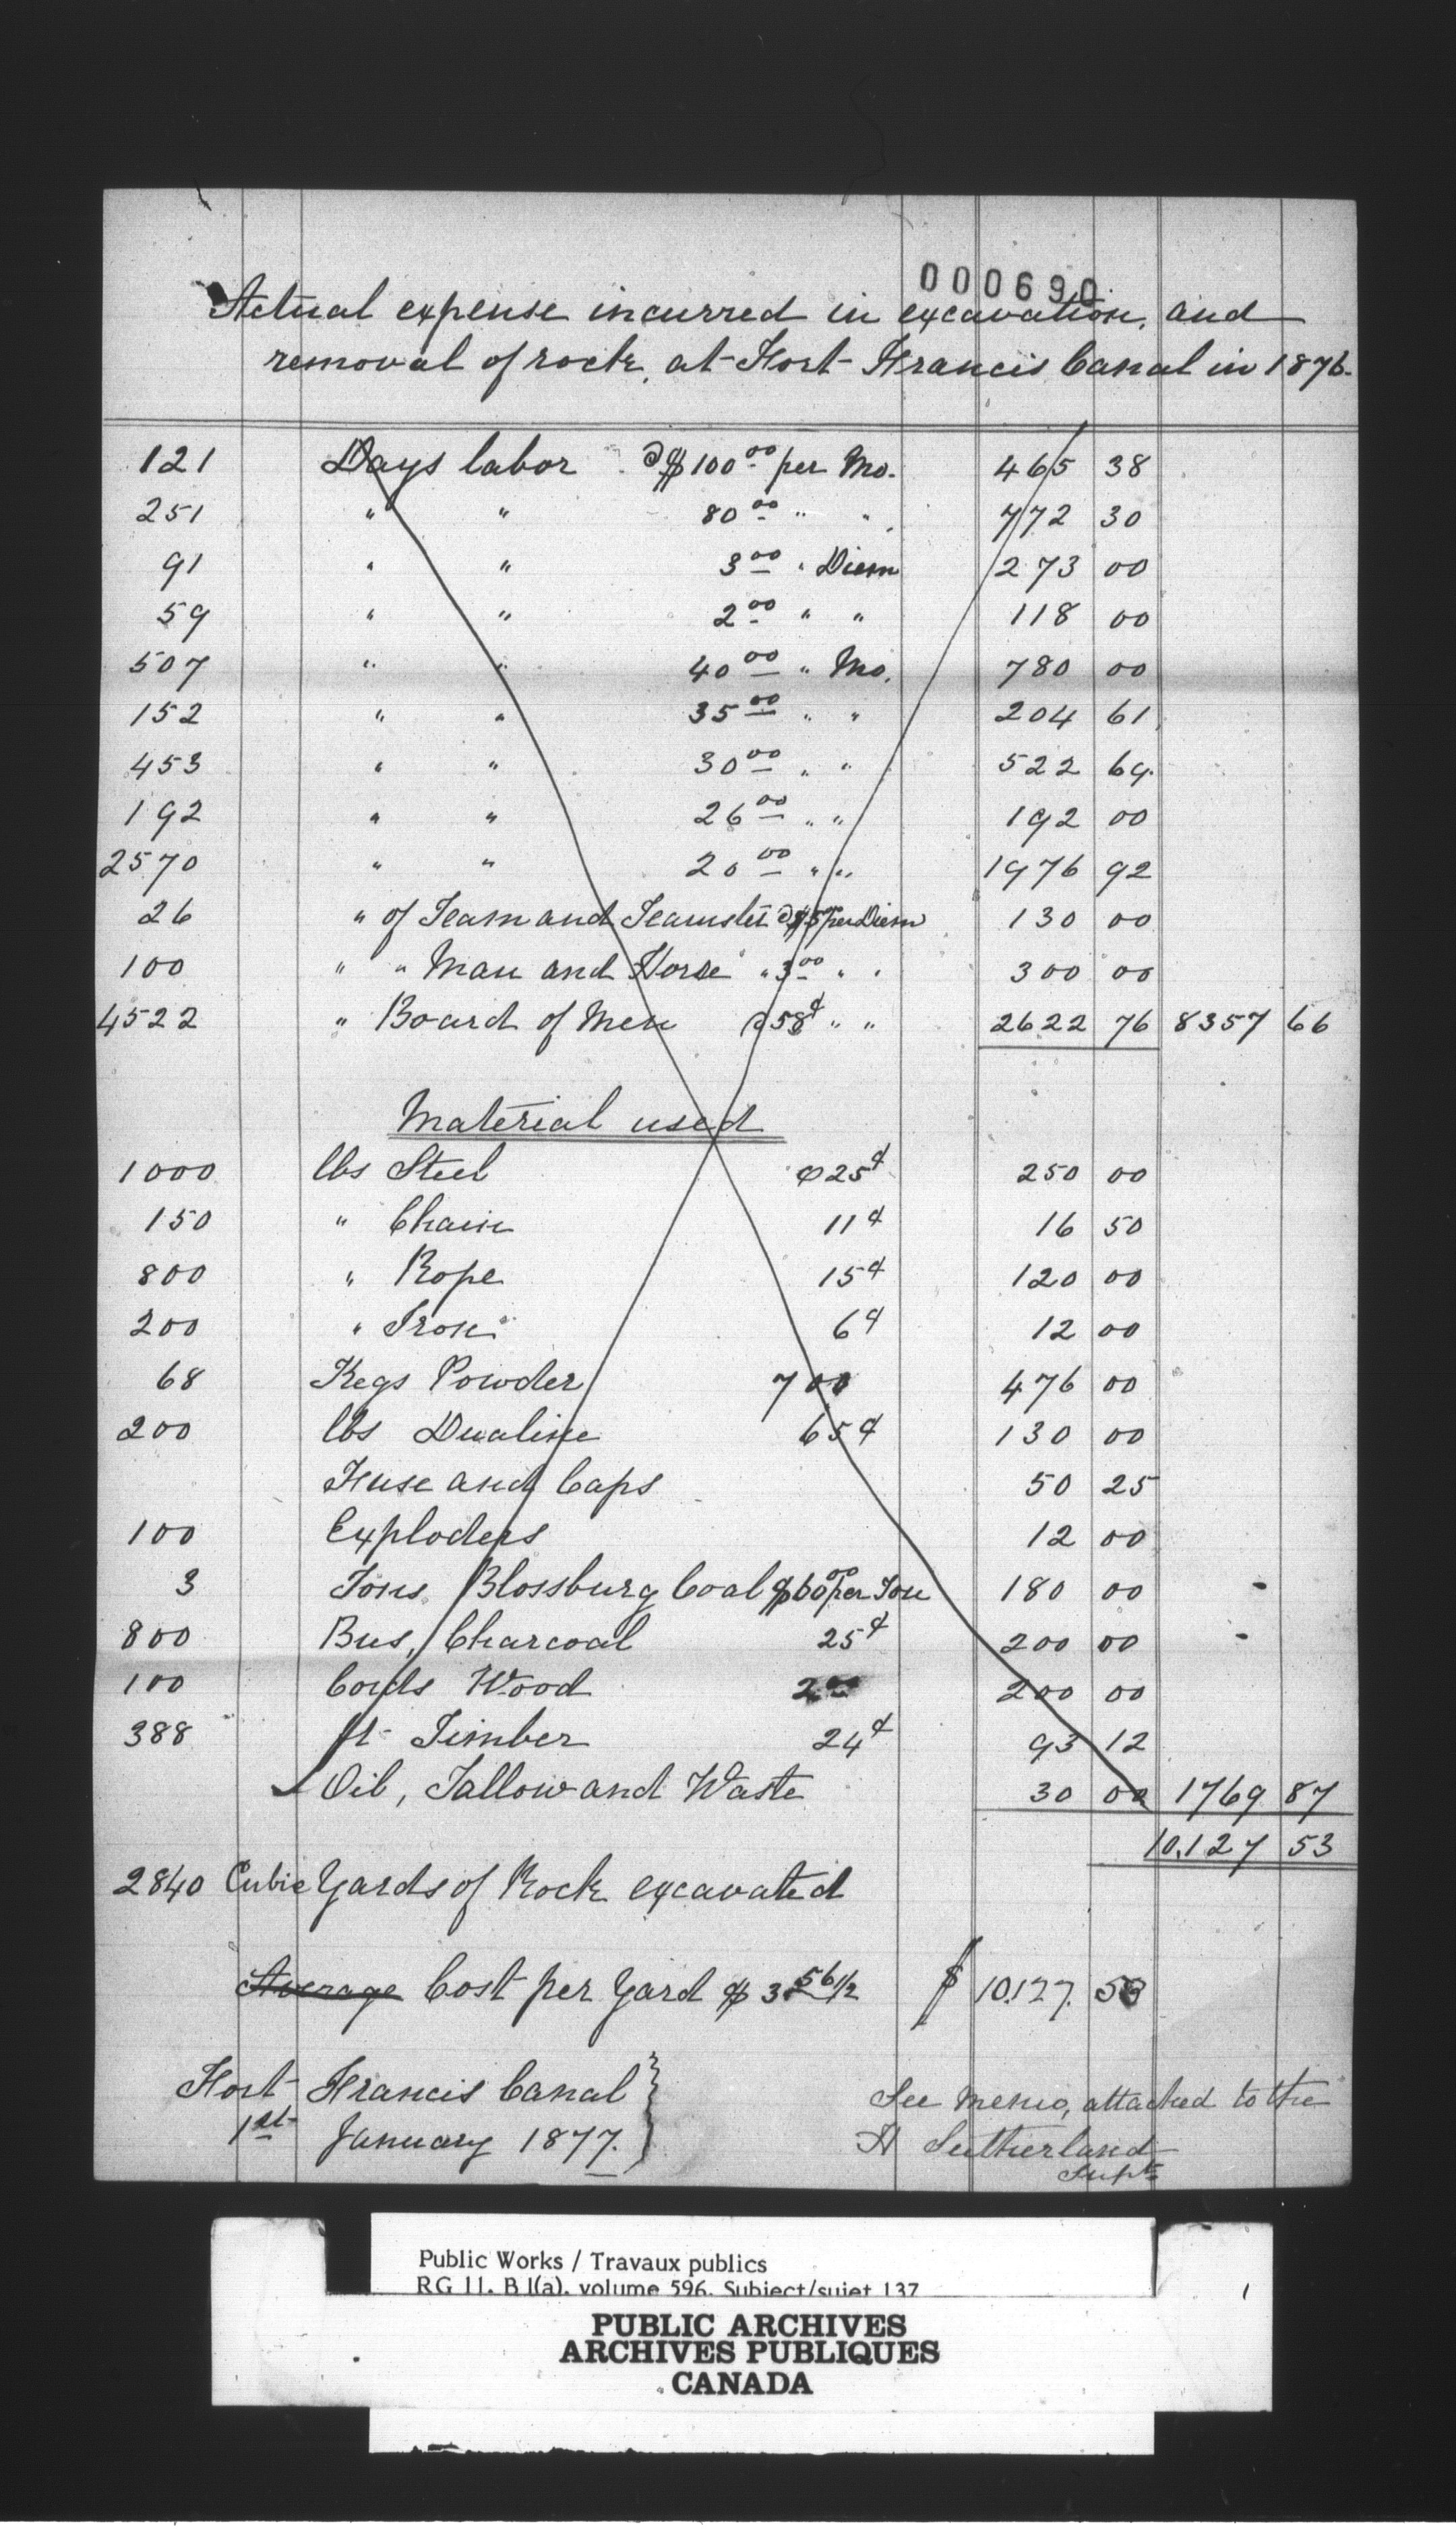 000690
Actual expense incurred in excavation, and
removal of rock, at Fort Francis Canal in 1876.
121 Days labor @ $100.00 per Mo. 465 38
251 " " 80.00 " " 772 30
91 " " 3.00 " Diem 273 00
59 " " 2.00 " " 118 00
507 " " 40.00 " Mo. 780 00
152 " " 35.00 " " 204 61
453 " " 30.00 " " 522 69
192 " " 26.00 " " 192 00
2570 " " 20.00 " " 1976 92
26 " of Team and Teamster @ $5.00 per Diem 130 00
100 " " Man and Horse " 3.00 " " 300 00
4522 " Board of Men @ 58¢ " " 2622 76 8357 66
Material used
1000 lbs Steel @ 25¢ 250 00
150 " Chain 11¢ 16 50
800 " Rope 15¢ 120 00
200 " Iron 6¢ 12 00
68 Kegs Powder 7 00 476 00
200 lbs Dualine 65¢ 130 00
Fuse and Caps 50 25
100 Exploders 12 00
3 Tons Blossburg Coal $60.00 per Ton 180 00
800 Bus, Charcoal 25¢ 200 00
100 Cords Wood 2.00 200 00
388 ft Timber 24¢ 93 12
Oil, Tallow and Waste 30 00 1769 87
10,127 53
2840 Cubic Yards of Rock excavated
Average Cost per Yard $3.56 1/2 $ 10.127. 53
Fort Francis Canal
1st January 1877.
See memo, attached to the
H Sutherland
Supt
Public Works / Travaux publics
RG 11, B 1(a), volume 596, Subject/sujet 137
PUBLIC ARCHIVES
ARCHIVES PUBLIQUES
CANADA